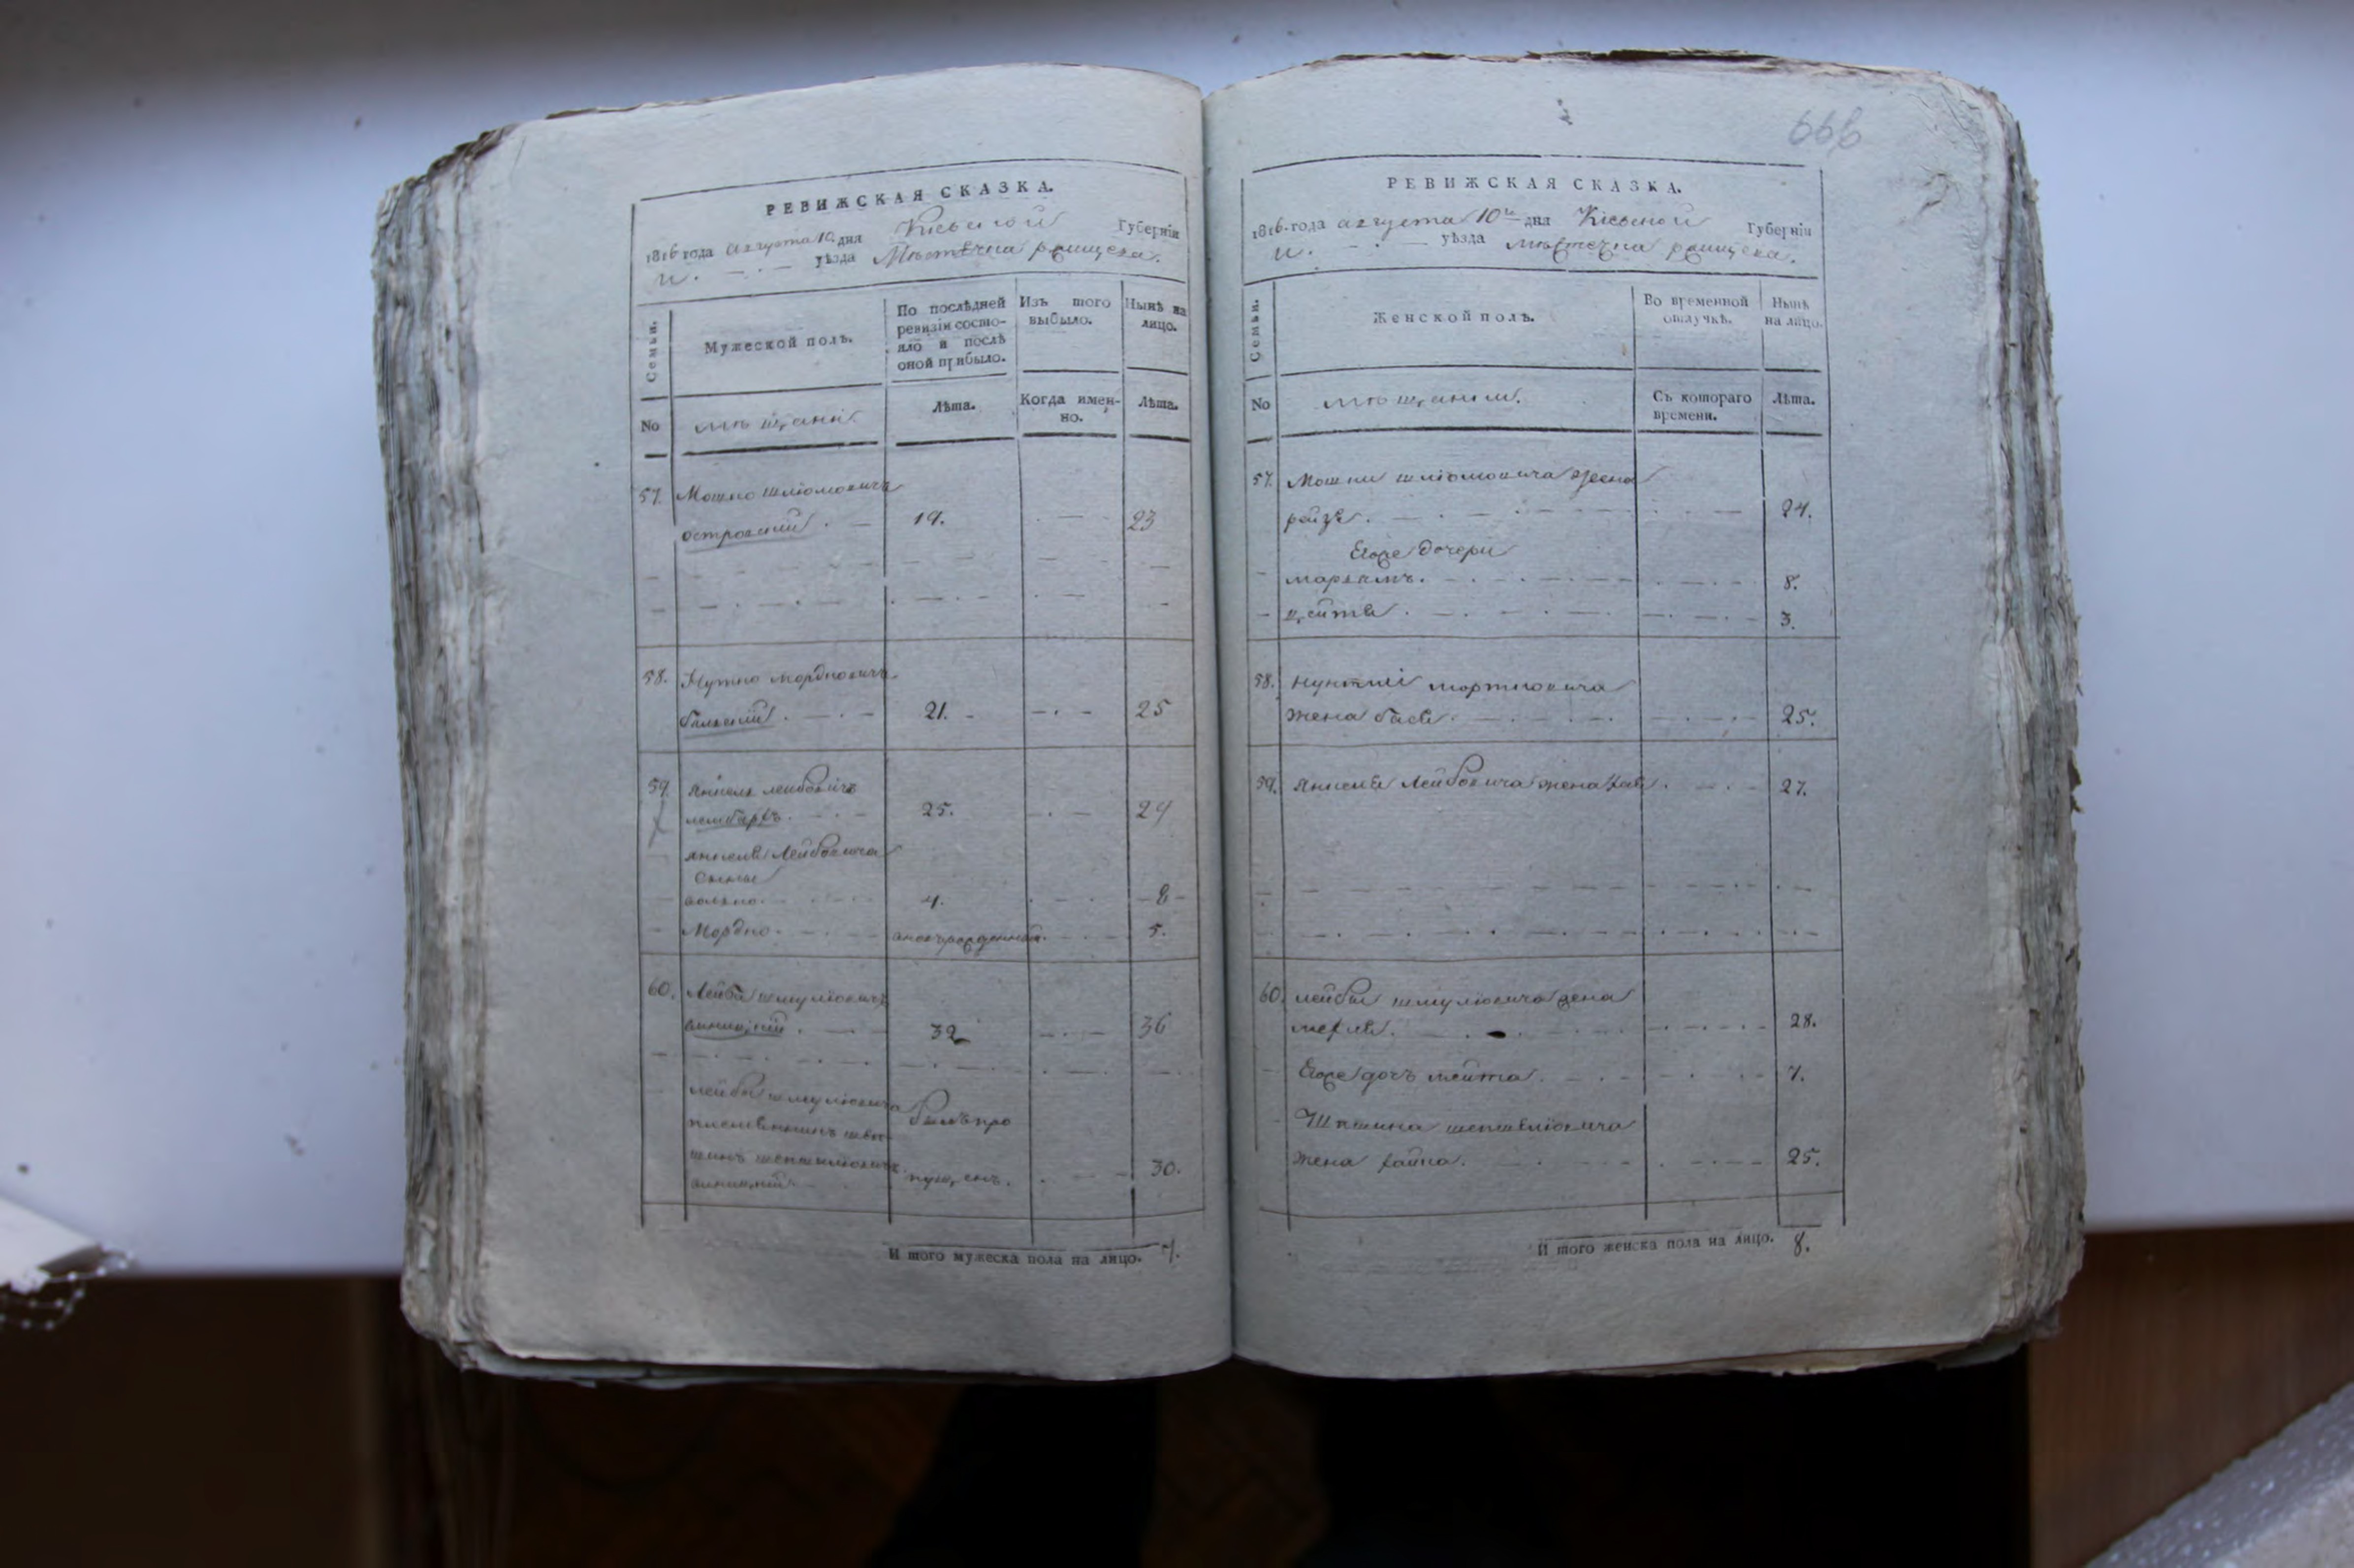 666
РЕВИЖСКАЯ СКАЗКА.
1816 года августа 10. дня Кіевской Губерніи
и. уѣзда Мѣстечка ращцека.
Семьи.
Мужеской полъ.
По послѣдней
ревизіи состо-
яло и послѣ
оной прибыло.
Изъ того
выбыло.
Нынѣ на
лицо.
No
мѣщани.
Лѣта.
Когда имен-
но.
Лѣта.
57. Мошко шліомовичъ
островский 19. 23
58. Нутко мордковичъ
21. 25
59. янкель лейбовичъ
25. 29
янкеля Лейбовича
сыны
волько. 4. 8
Мордко. новорожденной. 5.
60. Лейба шмуліовичъ
винницкій 32 36
лейбы шмуліовича былъ про
племѣнникъ
пущенъ. 30.
винницкій
И того мужеска пола на лицо. 7.
РЕВИЖСКАЯ СКАЗКА.
1816 года августа 10го дня Кіевской Губерніи
и. уѣзда мѣстечка ращцека.
Семьи.
Женской полъ.
Во временной
отлучкѣ.
Нынѣ
на лицо.
No
мѣщанки.
Съ котораго
времени.
Лѣта.
57. Мошки шліомовича жена
рейзя. 24.
Егоже дочери
марьямъ. 8.
цейтля. 3.
58. мортковича
жена бася. 25.
59. янкеля Лейбовича жена хая. 27.
60. лейбы шмуліовича жена
мерля. 28.
Егоже дочь 7.
жена хайка. 25.
И того женска пола на лицо. 8.